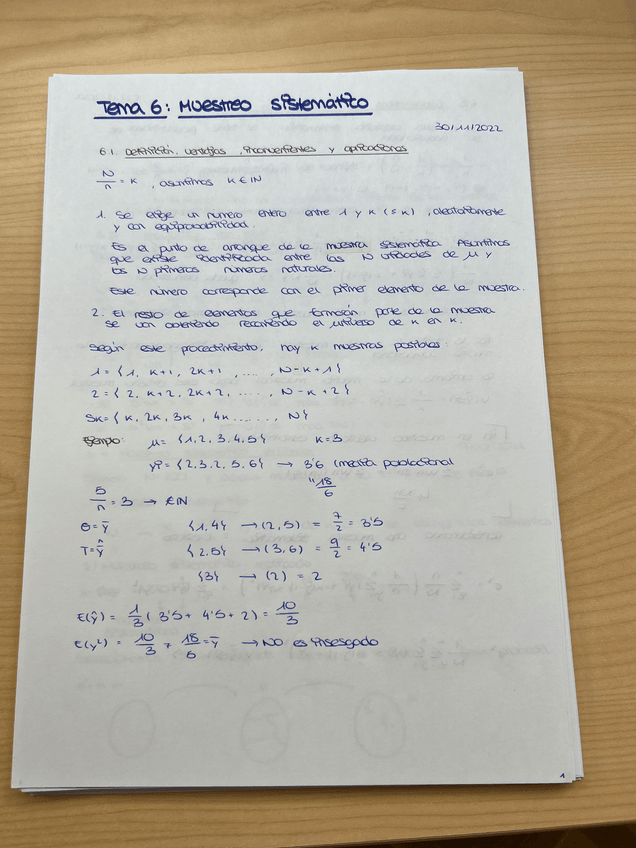 Tema 6: MUESTREO SISTEMÁTICO
30/11/2022
6.1. Definición, ventajas, inconvenientes y aplicaciones
N/n = K, asumimos K ∈ IN
1. Se elige un número entero entre 1 y K (≤ K), aleatoriamente
y con equiprobabilidad.
Es el punto de arranque de la muestra sistemática. Asumimos
que existe identificada entre las N unidades de μ y
los N primeros números naturales.
Este número corresponde con el primer elemento de la muestra.
2. El resto de elementos que formarán parte de la muestra
se van obteniendo recorriendo el universo de K en K.
Según este procedimiento, hay K muestras posibles:
1 = {1, K+1, 2K+1, ...., N-K+1}
2 = {2, K+2, 2K+2, ...., N-K+2}
SK = {K, 2K, 3K, 4K ......, N}
Ejemplo: μ = {1, 2, 3, 4, 5} K=3
yi = {2, 3, 2, 5, 6} → 3'6 (media poblacional
" 18/6
5/n = 3 → ∈ IN
θ = ȳ {1, 4} → (2, 5) = 7/2 = 3'5
T = ŷ {2, 5} → (3, 6) = 9/2 = 4'5
{3} → (2) = 2
E(ŷ) = 1/3 (3'5 + 4'5 + 2) = 10/3
E(y²) = 10/3 ≠ 18/6 = ȳ → NO es insesgado
1